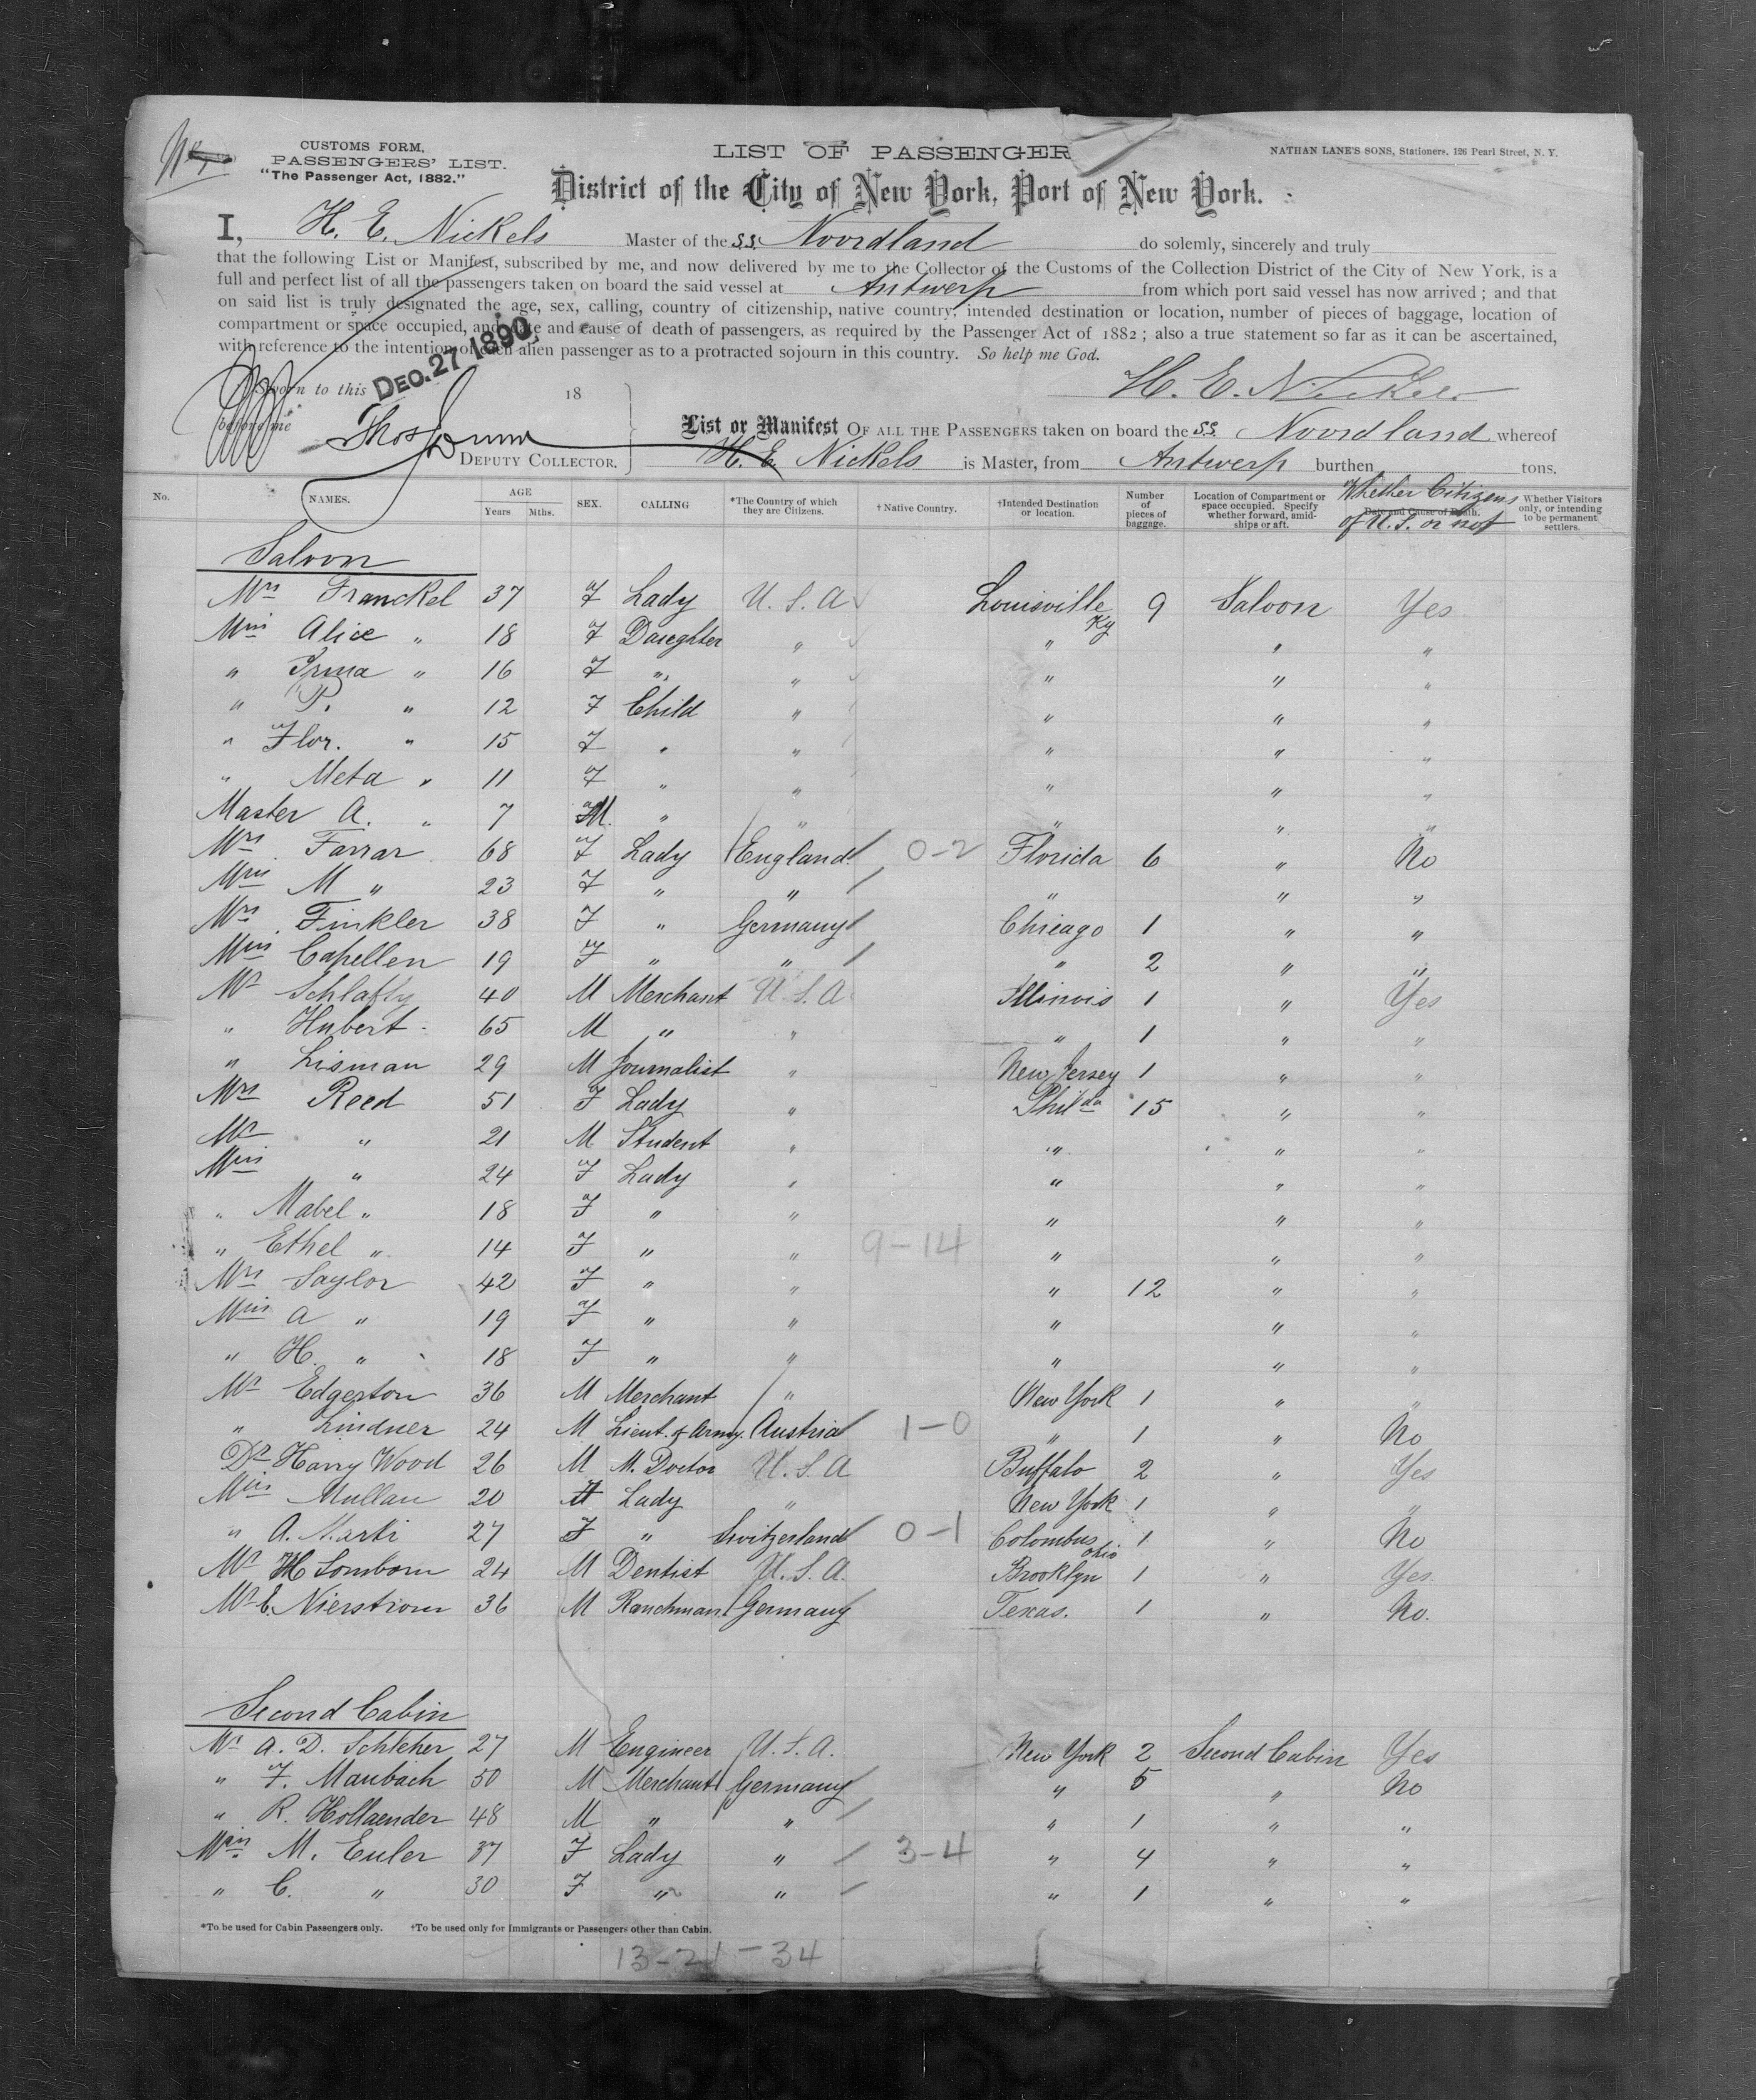 CUSTOMS FORM,
PASSENGERS' LIST.
"The Passenger Act, 1882."
LIST OF PASSENGER
NATHAN LANE'S SONS, Stationers, 126 Pearl Street, N. Y.
District of the City of New York, Port of New York.
I, H. E. Nickels Master of the S.S. Noordland do solemly, sincerely and truly
that the following List or Manifest, subscribed by me, and now delivered by me to the Collector of the Customs of the Collection District of the City of New York, is a
full and perfect list of all the passengers taken on board the said vessel at Antwerp from which port said vessel has now arrived; and that
on said list is truly designated the age, sex, calling, country of citizenship, native country, intended destination or location, number of pieces of baggage, location of
compartment or space occupied, and date and cause of death of passengers, as required by the Passenger Act of 1882; also a true statement so far as it can be ascertained,
with reference to the intention of each alien passenger as to a protracted sojourn in this country. So help me God.
Sworn to this DEC. 27 1890 18
H. E. Nickels
before me Thos
DEPUTY COLLECTOR.
List or Manifest OF ALL THE PASSENGERS taken on board the S.S. Noordland whereof
H. E. Nickels is Master, from Antwerp burthen tons.
No. NAMES. AGE Years Mths. SEX. CALLING *The Country of which they are Citizens. †Native Country. †Intended Destination or location. Number of pieces of baggage. Location of Compartment or space occupied. Specify whether forward, amidships or aft. Date and Cause of Death. Whether Citizens of U.S. or not Whether Visitors only, or intending to be permanent settlers.
Saloon
Mrs Franckel 37 F Lady U.S.A Louisville Ky 9 Saloon Yes
Miss Alice " 18 F Daughter " " " "
" Irma " 16 F " " " " "
" P. " 12 F Child " " " "
" Flor. " 15 F " " " " "
" Meta " 11 F " " " " "
Master A. " 7 M. " " " " "
Mrs Farrar 68 F Lady England 0-2 Florida 6 " No
Miss M " 23 F " " " " "
Mrs Finkler 38 F " Germany Chicago 1 " "
Miss Capellen 19 F " " " 2 " "
Mr Schlafly 40 M Merchant U.S.A Illinois 1 " Yes
" Hubert 65 M " " " 1 " "
" Lisman 29 M Journalist " New Jersey 1 " "
Mrs Reed 51 F Lady " Philda 15 " "
Mr " 21 M Student " " " "
Miss " 24 F Lady " " " "
" Mabel " 18 F " " " " "
" Ethel " 14 F " " 9-14 " " "
Mrs Saylor 42 F " " " 12 " "
Miss A " 19 F " " " " "
" H. " 18 F " " " " "
Mr Edgerton 36 M Merchant " New York 1 " "
" Lindner 24 M Lieut. of Army. Austria 1-0 " 1 " No
Dr Harry Wood 26 M M. Doctor U.S.A Buffalo 2 " Yes
Miss Mullan 20 F Lady " New York 1 " "
" A. Marti 27 F " Switzerland 0-1 Colombus Ohio 1 " No
Mr H Somborn 24 M Dentist U.S.A. Brooklyn 1 " Yes.
Mr E. Nierstrom 36 M Ranchman Germany Texas. 1 " No.
Second Cabin
Mr A. D. Schleher 27 M Engineer U.S.A. New York 2 Second Cabin Yes
" F. Maubach 50 M Merchant Germany " 5 " No
" R. Hollaender 48 M " " " 1 " "
Miss M. Euler 37 F Lady " 3-4 " 4 " "
" C. " 30 F " " " 1 " "
*To be used for Cabin Passengers only. †To be used only for Immigrants or Passengers other than Cabin.
13-21-34